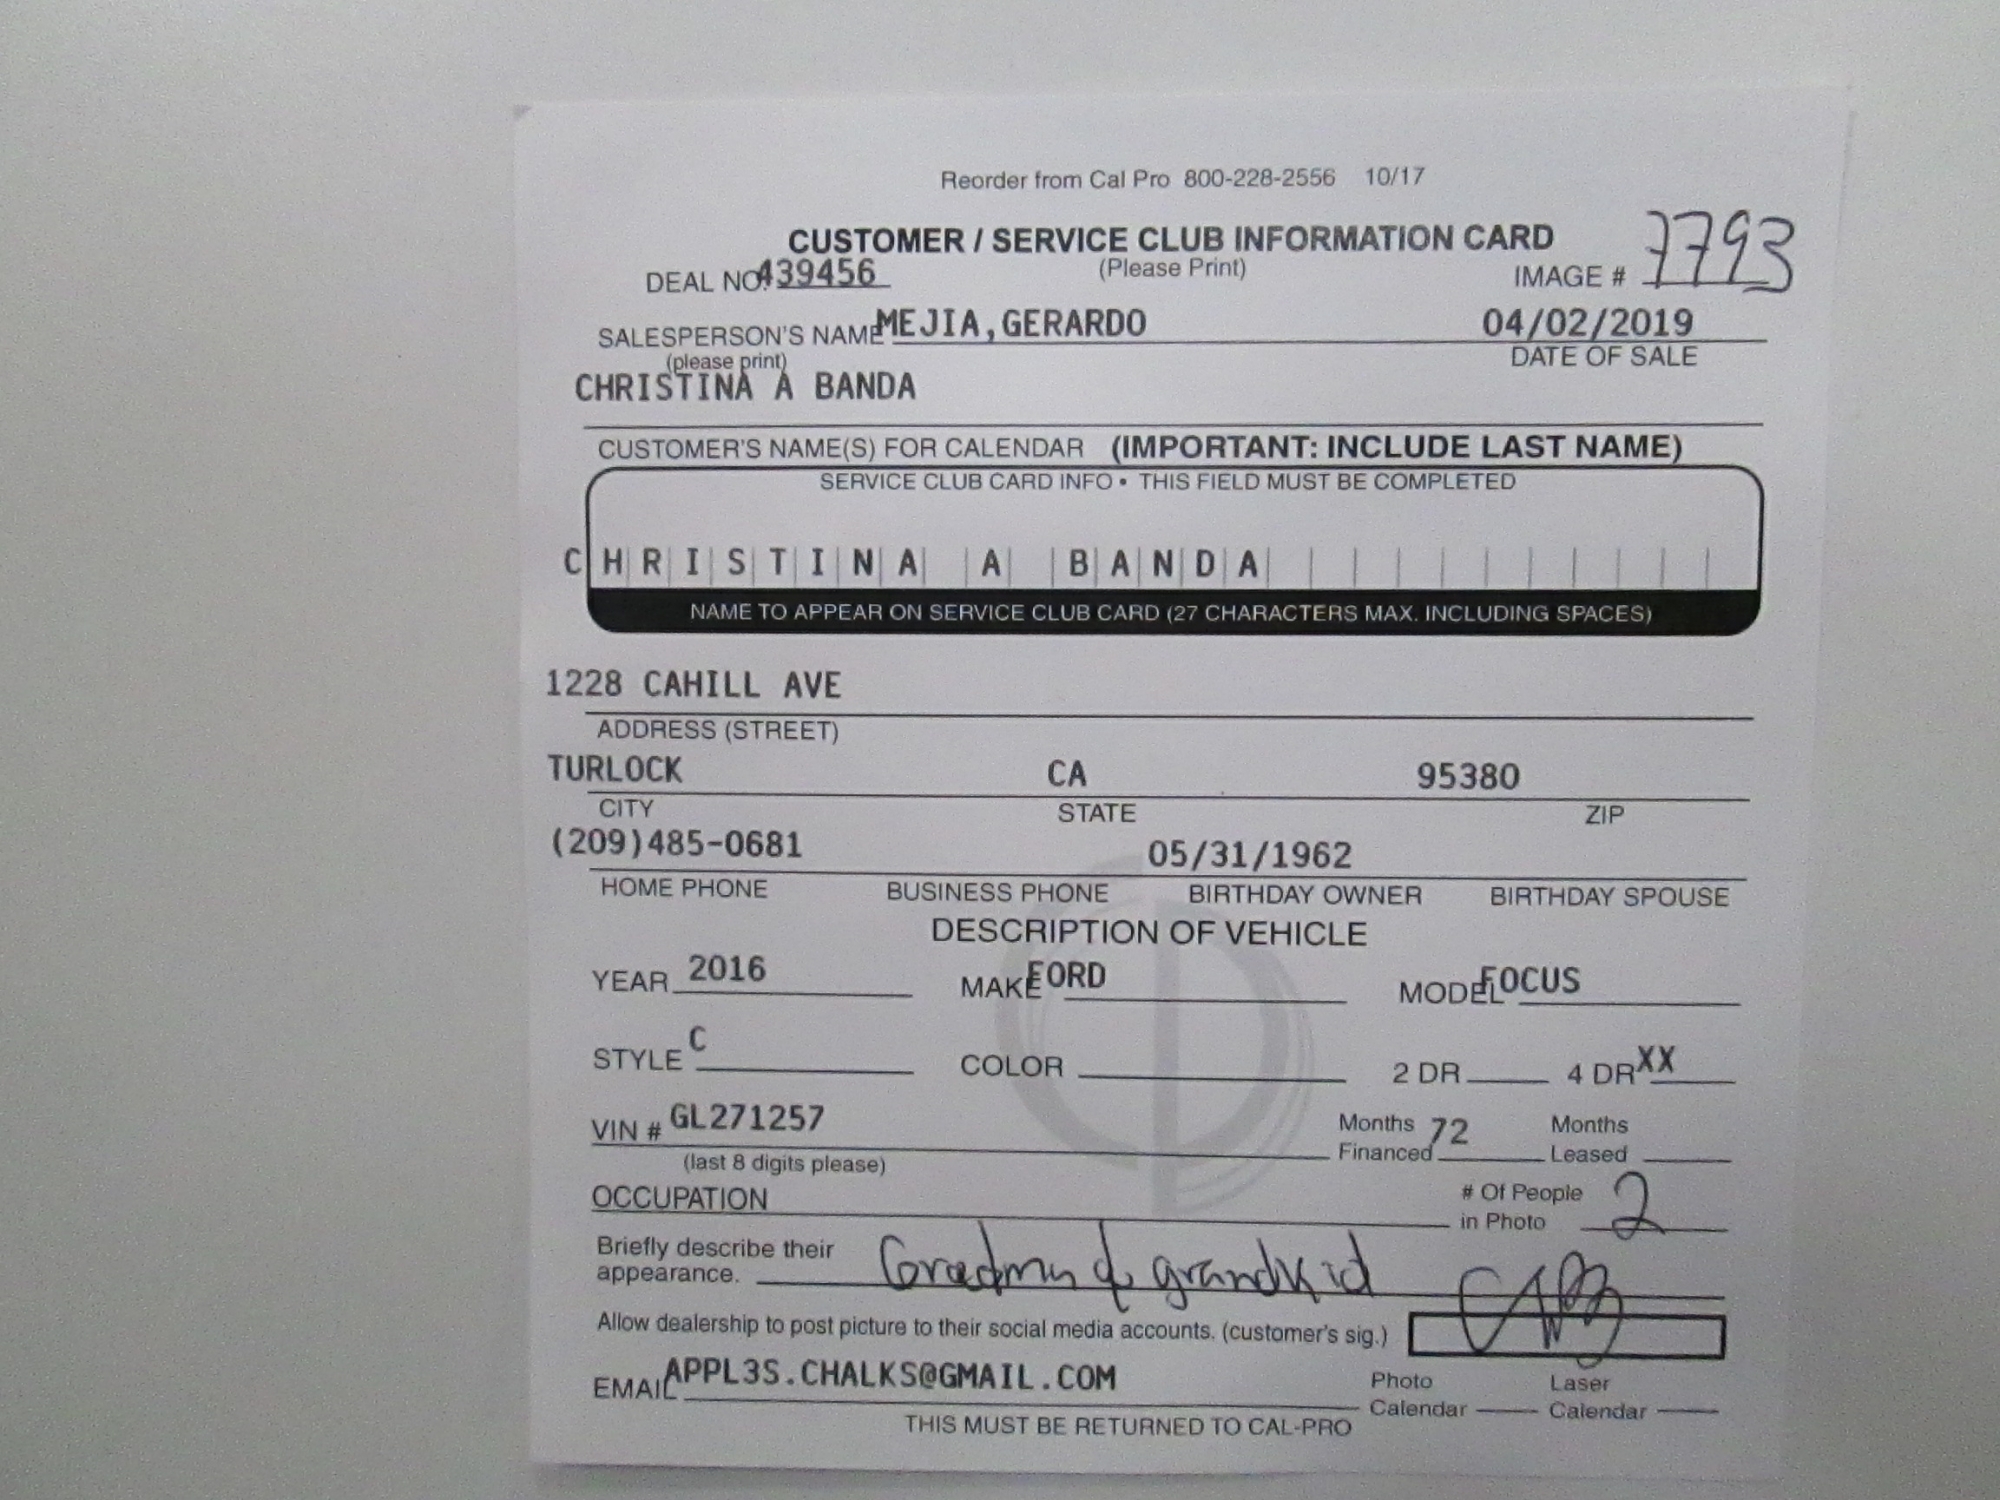 Reorder from Cal Pro 800-228-2556 10/17
CUSTOMER / SERVICE CLUB INFORMATION CARD
(Please Print)
DEAL NO. 439456 IMAGE # 7793
SALESPERSON'S NAME MEJIA,GERARDO 04/02/2019
(please print) DATE OF SALE
CHRISTINA A BANDA
CUSTOMER'S NAME(S) FOR CALENDAR (IMPORTANT: INCLUDE LAST NAME)
SERVICE CLUB CARD INFO • THIS FIELD MUST BE COMPLETED
CHRISTINA A BANDA
NAME TO APPEAR ON SERVICE CLUB CARD (27 CHARACTERS MAX. INCLUDING SPACES)
1228 CAHILL AVE
ADDRESS (STREET)
TURLOCK CA 95380
CITY STATE ZIP
(209)485-0681 05/31/1962
HOME PHONE BUSINESS PHONE BIRTHDAY OWNER BIRTHDAY SPOUSE
DESCRIPTION OF VEHICLE
YEAR 2016 MAKE FORD MODEL FOCUS
STYLE C COLOR 2 DR 4 DR XX
VIN # GL271257 Months Financed 72 Months Leased
(last 8 digits please)
OCCUPATION # Of People in Photo 2
Briefly describe their appearance. & grandkid
Allow dealership to post picture to their social media accounts. (customer's sig.)
EMAIL APPL3S.CHALKS@GMAIL.COM Photo Calendar Laser Calendar
THIS MUST BE RETURNED TO CAL-PRO